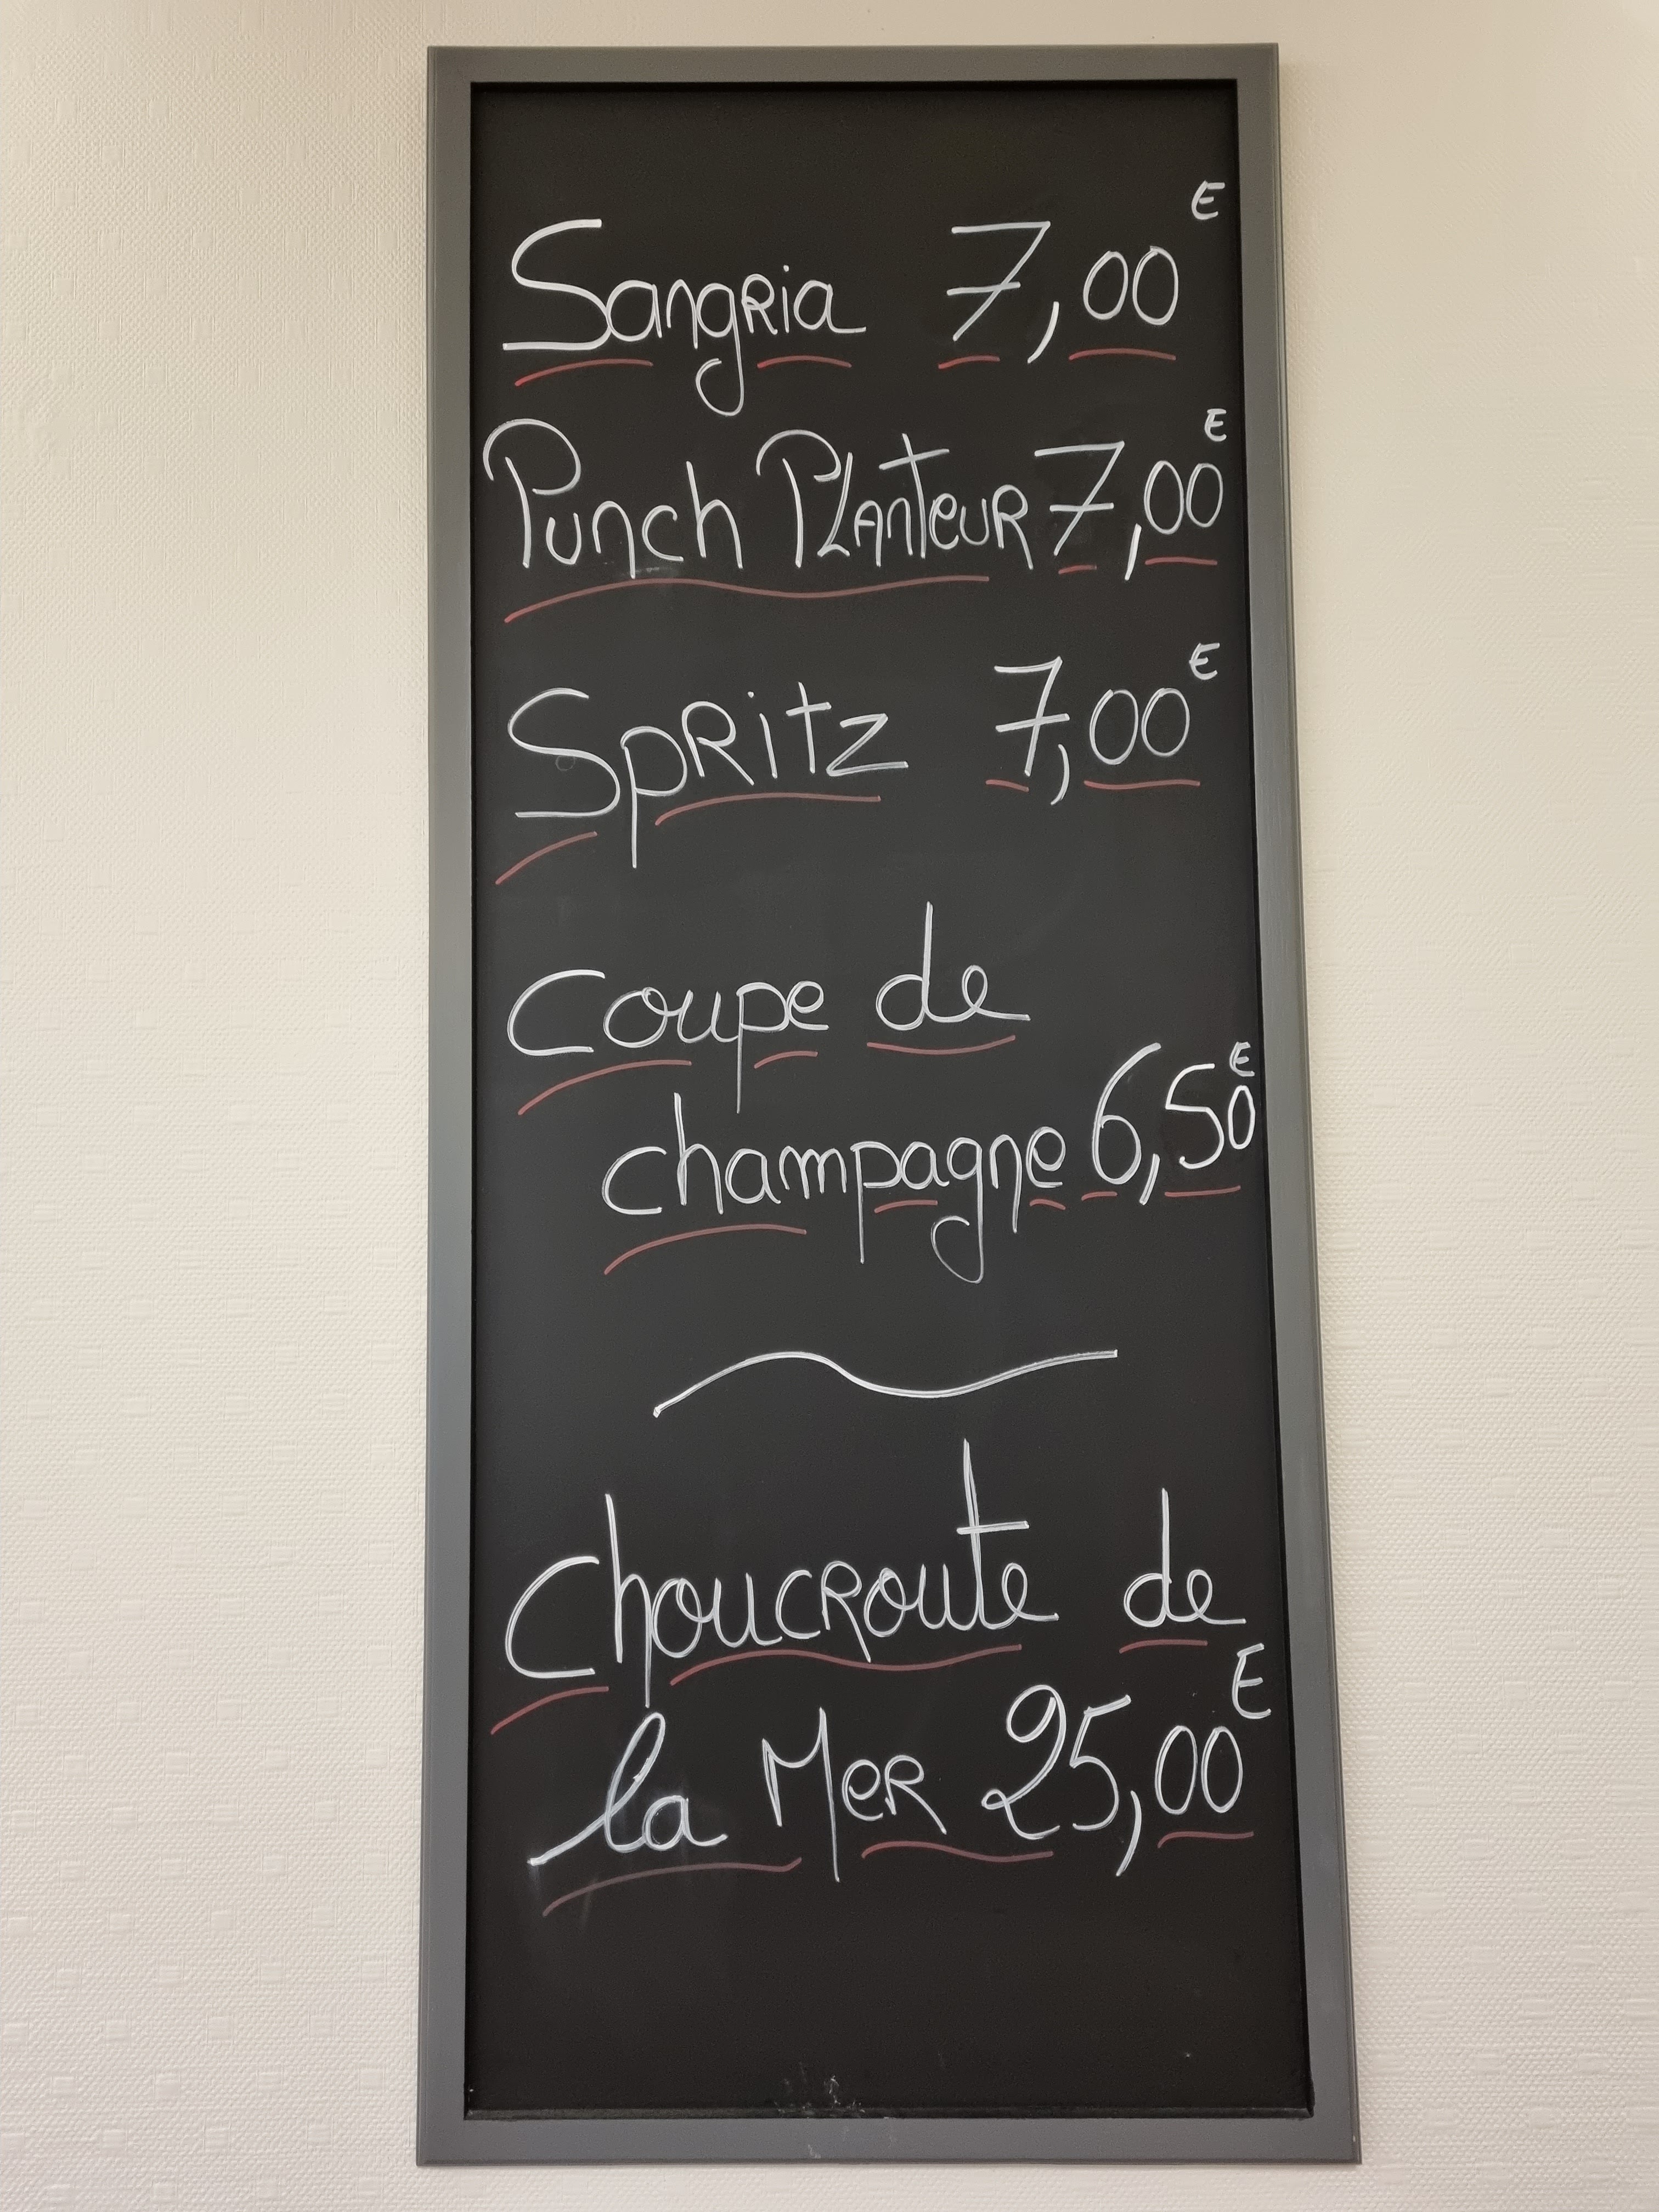 Sangria 7,00E
Punch Planteur 7,00E
Spritz 7,00E
Coupe de
champagne 6,50E
Choucroute de
la Mer 25,00E